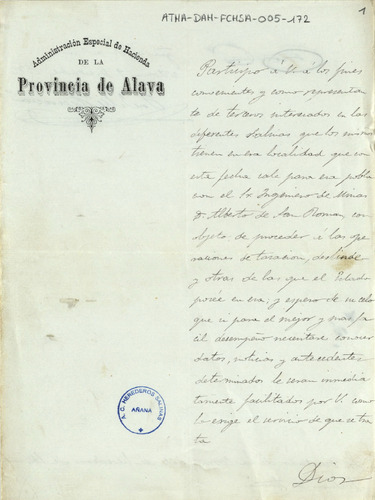 ATHA-DAH-FCHSA-005-172
1
Administración Especial de Hacienda
DE LA
Provincia de Alava
Participo á U á los fines
consiguientes y como representan
te de terceros interesados en las
diferentes Salinas que los mismos
tienen en esa localidad que con
esta fecha sale para esa pobla
cion el Sr Ingeniero de Minas
D. Alberto de San Roman, con
objeto de proceder á las ope
raciones de tasacion, deslinde
y otras de las que el Estado
posee en esa; y espero de su celo
que si para el mejor y mas fa
cil desempeño necesitase conocer
datos, noticias y antecedentes
determinados le seran inmedia
tamente facilitados por U como
lo exige el servicio de que se tra
ta
Dios
A. C. HEREDEROS SALINAS
AÑANA